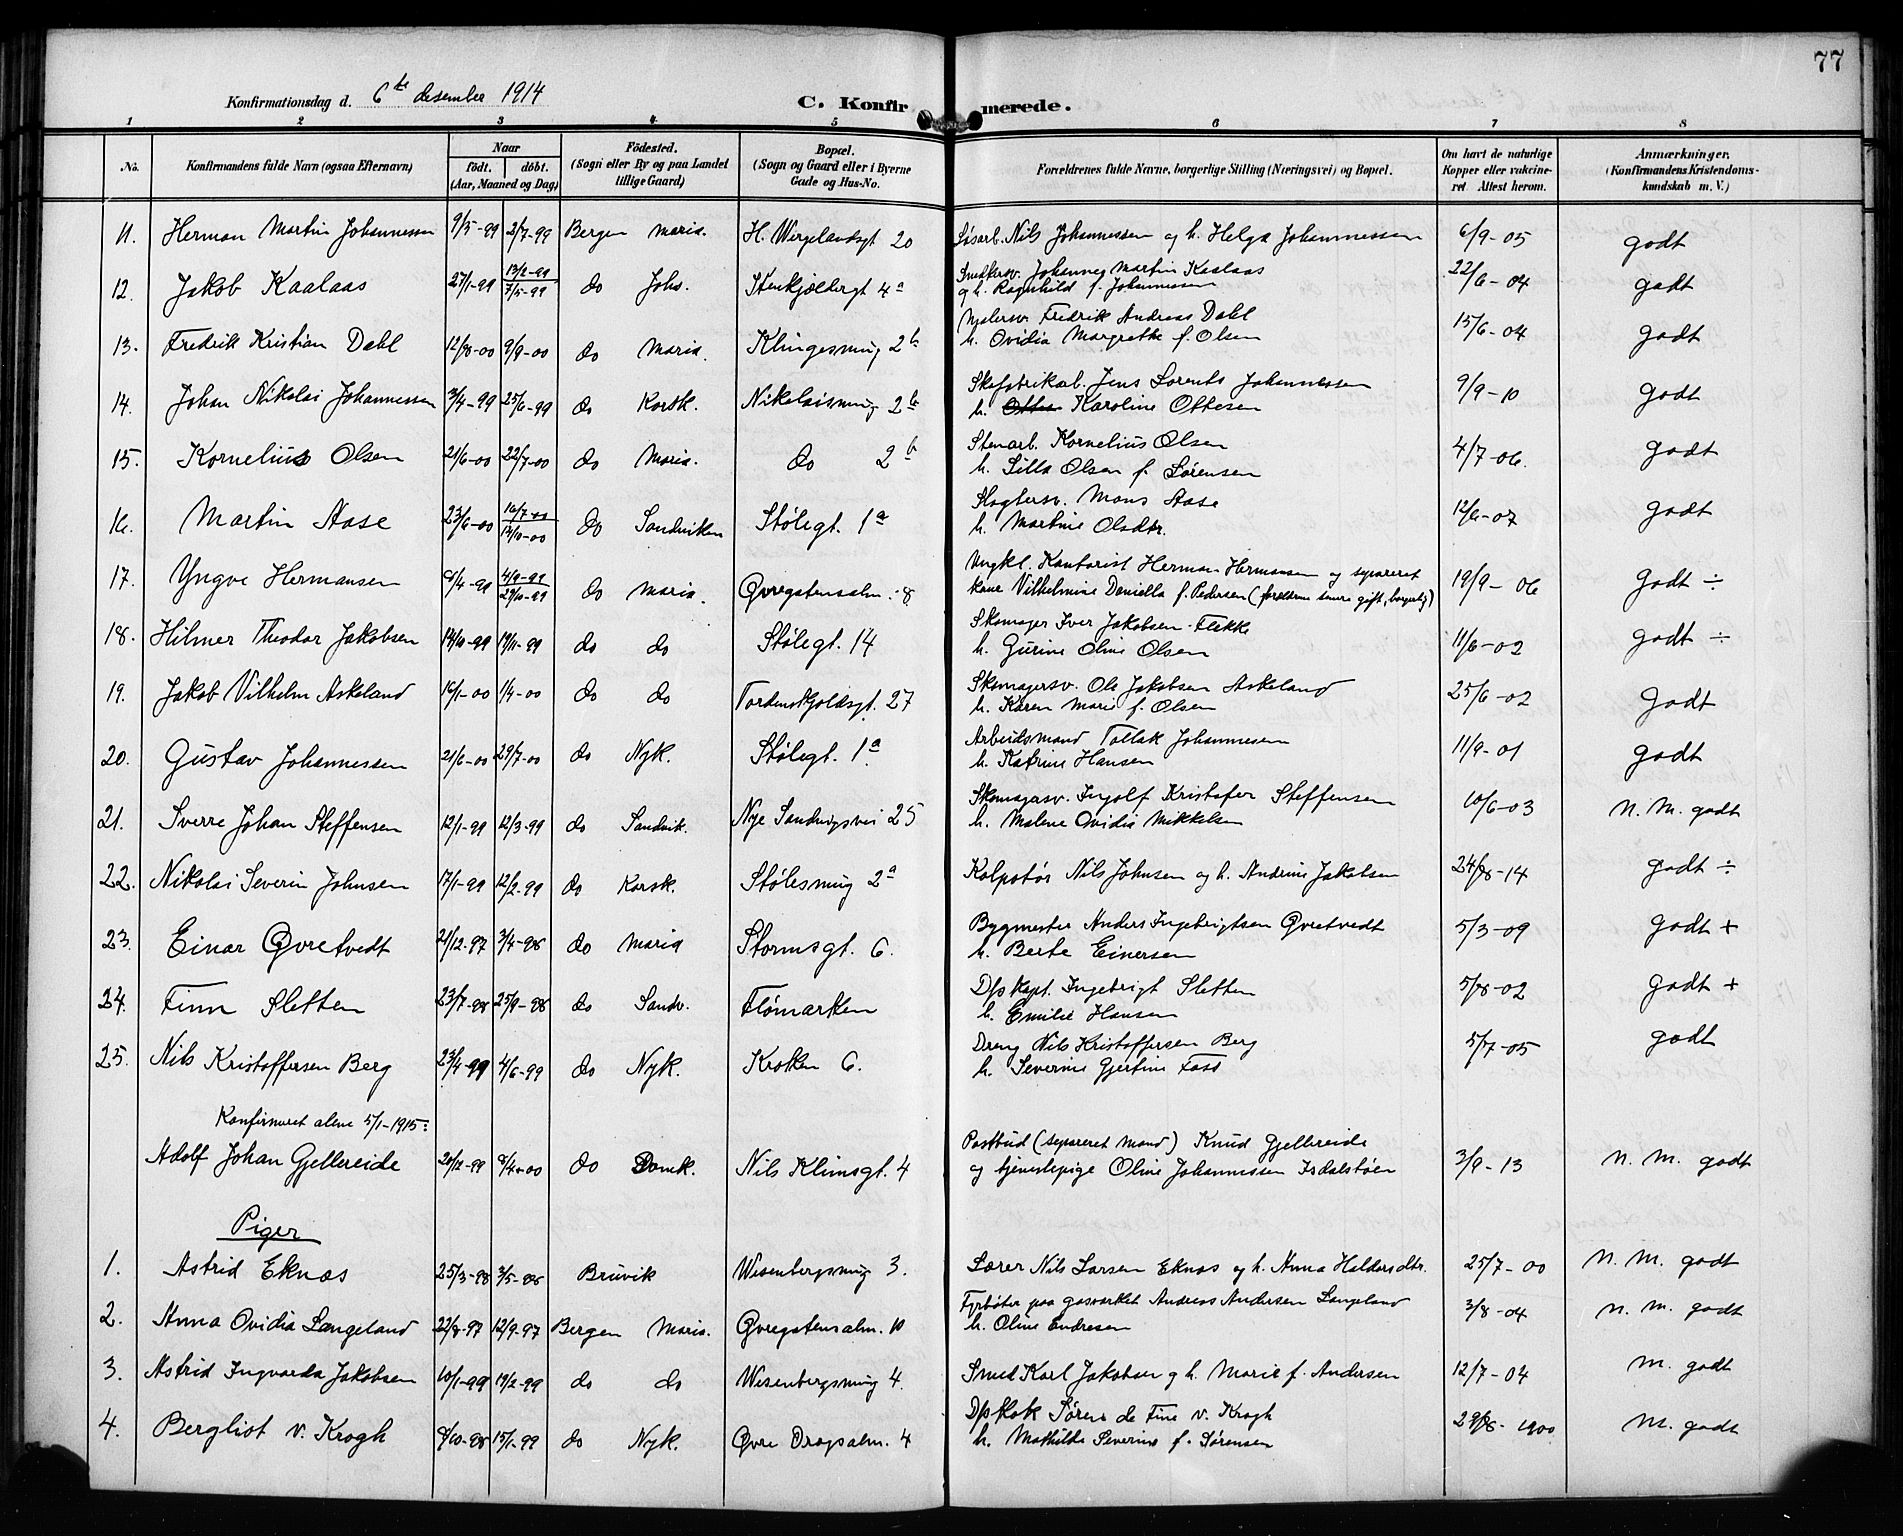 77
Konfirmationsdag d. 6te desember 1914
C. Konfirmerede.
1 2 3 4 5 6 7 8
No. Konfirmandens fulde Navn (ogsaa Efternavn) Naar født. døbt. (Aar, Maaned og Dag) Fødested. (Sogn eller By og paa Landet tillige Gaard) Bopæl. (Sogn og Gaard eller i Byerne Gade og Hus-No. Forældrenes fulde Navne, borgerlige Stilling (Næringsvei) og Bopæl. Om havt de naturlige Kopper eller vakcineret. Attest herom. Anmærkninger. (Konfirmandens Kristendomskundskab m. V.)
11. Herman Martin Johannessen 9/5-99 2/7-99 Bergen Maria. H. Wergelandsgt 20 Løsarb. Nils Johannessen og h. Helga Johannessen 6/9-05 godt
12. Jakob Kaalaas 27/1-99 13/2-99 7/5-99 do Johs. Stenkjældergt 4a Snedkersv. Johannes Martin Kaalaas
og h. Ragnhild f. Johannessen 22/6-04 godt
13. Fredrik Kristian Dahl 12/8-00 9/9-00 do Maria. Klingesmug 2b Malersv. Fredrik Andreas Dahl
h. Ovidia Margrethe f. Olsen 15/6-04 godt
14. Johan Nikolai Johannessen 3/4-99 25/6-99 do Korsk. Nikolaismug 2b Skofabrikarb. Jens Lorents Johannessen
h. Karoline Ottesen 9/9-10 godt
15. Kornelius Olsen 21/6-00 22/7-00 do Maria. do 2b Stenarb. Kornelius Olsen
h. Silla Olsen f. Sørensen 4/7-06. godt
16. Martin Aase 23/6-00 16/7-00 14/10-00 do Sandviken Stølegt. 1a Slagtersv. Mons Aase
h. Martine Olsdtr. 12/6-07 godt
17. Yngve Hermansen 8/4-99 4/9-99 29/10-99 do Maria. Øvregatensalm. 8 Ungkl. Kontorist Herman Hermansen og separeret
kone Vilhelmine Daniella f. Pedersen (forældrene senere gift, borgerlig) 19/9-06 Godt ÷
18. Hilmer Theodor Jakobsen 14/10-99 19/11-99 do do Stølegt. 14 Skomager Iver Jakobsen Flekke
h. Gurine Oline Olsen 11/6-02 godt ÷
19. Jakob Vilhelm Askeland 16/1-00 1/4-00 do do Tordenskjoldsgt. 27 Skomagersv. Ole Jakobsen Askeland
h. Karen Marie f. Olsen 25/6-02 Godt
20. Gustav Johannessen 21/6-00 29/7-00 do Nyk. Stølegt. 1a Arbeidsmand Tollak Johannesen
h. Katrine Hansen 11/9-01 godt
21. Sverre Johan Steffensen 12/1-99 12/3-99 do Sandvik. Nye Sandvigsvei 25 Skomagersv. Ingolf Kristofer Steffensen
h. Malene Ovidia Mikkelsen 10/6-03 n. M. godt
22. Nikolai Severin Johnsen 17/1-99 12/2-99 do Korsk. Stølesmug 2a Kolpotør Nils Johnsen og h. Andrine Jakobsen 24/8-14 godt ÷
23. Einar Øvretvedt 21/12-97 3/4-98 do Maria Stormsgt. 6. Bygmester Anders Ingebrigtsen Øvretvedt
h. Berte Einersen 5/3-09 godt +
24. Finn Sletten 23/7-98 25/9-98 do Sandv. Flømarken D/s kapt. Ingebrigt Sletten
h. Emilie Hansen 5/8-02 godt +
25. Nils Kristoffersen Berg 23/4-99 4/6-99 do Nyk. Kroken 6. Dreng Nils Kristoffersen Berg
h. Severine Gjertine Foss 5/7-05 godt
Konfirmeret alene 5/1-1915:
Adolf Johan Gjellereide 20/12-99 8/4-00 do Domk. Nils Klimsgt. 4 Postbud (separeret mand) Knud Gjellereide
og tjenestepige Oline Johannessen Isdalstøen 3/9-13 n. M. godt
Piger
1. Astrid Eknæs 25/3-98 3/5-98 Bruvik Wesenbergsmug 3. Lærer Nils Larsen Eknæs og h. Anna Haldorsdtr. 25/7-00 n. M. godt
2. Anna Ovidia Langeland 22/8-97 12/9-97 Bergen Maria. Øvregatensalm. 10 Fyrbøter paa gasværket Andreas Andersen Langeland
h. Oline Endresen 3/8-04 n. m. godt
3. Astrid Ingvarda Jakobsen 10/1-99 19/2-99 do do Wesenbergsmug 4. Smed Karl Jakobsen og h. Marie f. Andersen 12/7-04 M. godt
4. Bergliot v. Krogh 8/10-98 15/1-99 do Nyk. Øvre Dragsalm. 4 D/s kok Søren de Fine v. Krogh
h. Mathilde Severine f. Sørensen 29/8-1900 M. godt